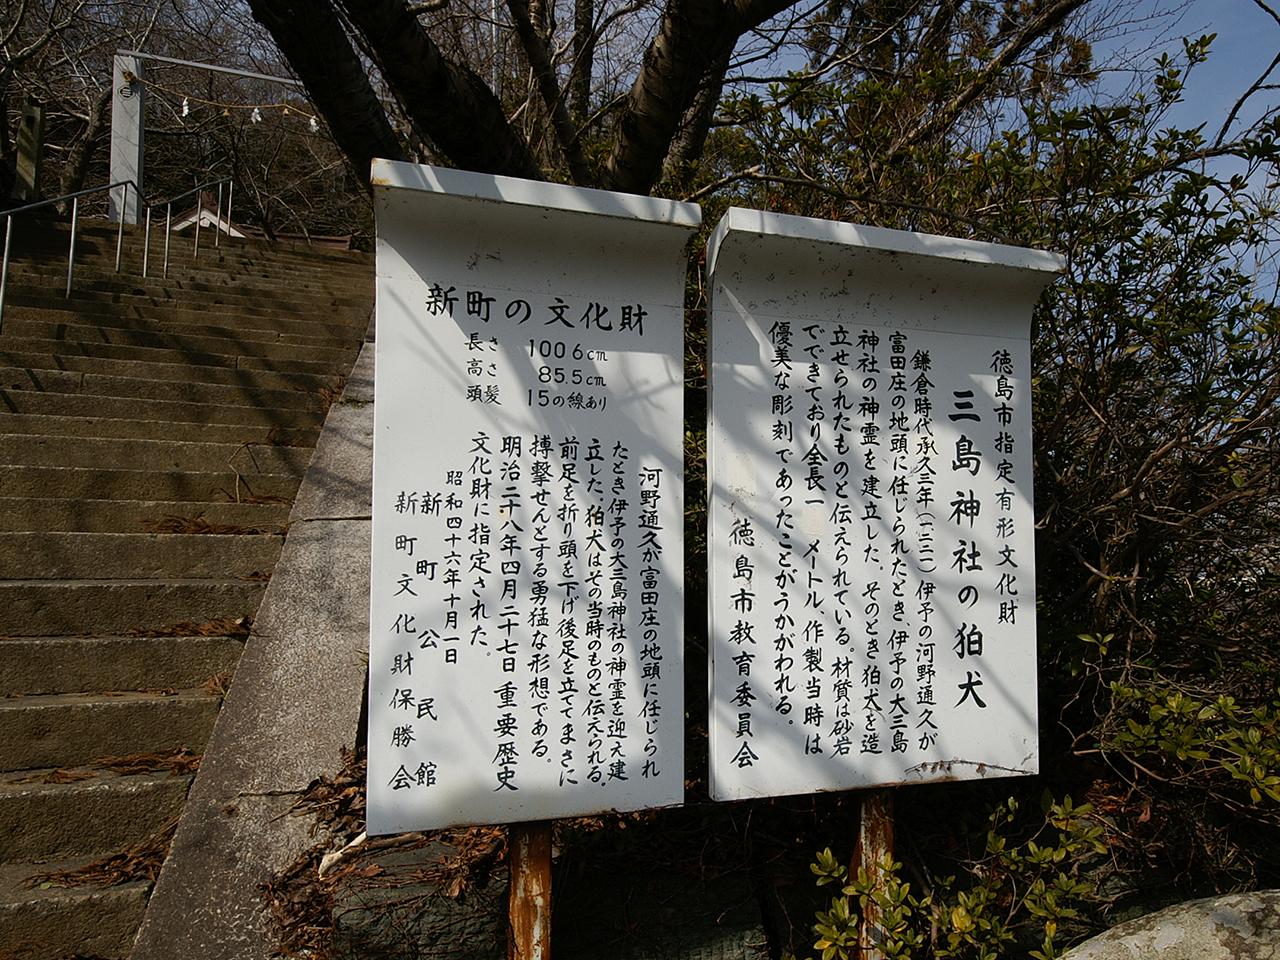 新町の文化財
長さ 100.6cm
高さ 85.5cm
頭髪 15の線あり
河野通久が富田庄の地頭に任じられ
たとき伊予の大三島神社の神霊を迎え建
立した。狛犬はその当時のものと伝えられる。
前足を折り頭を下げ後足を立ててまさに
搏撃せんとする勇猛な形想である。
明治二十八年四月二十七日重要歴史
文化財に指定された。
昭和四十六年十月一日
新町公民館
新町文化財保勝会
徳島市指定有形文化財
三島神社の狛犬
鎌倉時代承久三年(一二二一)伊予の河野通久が
富田庄の地頭に任じられたとき、伊予の大三島
神社の神霊を建立した。そのとき狛犬を造
立せられたものと伝えられている。材質は砂岩
でできており全長一 メートル、作製当時は
優美な彫刻であったことがうかがわれる。
徳島市教育委員会